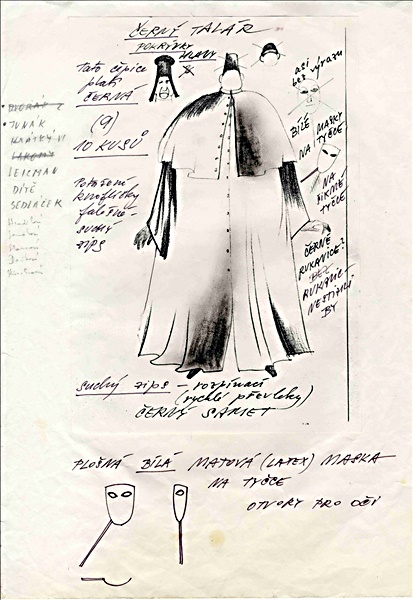 ČERNÝ TALÁR
POKRÝVKY
HLAVY
Tato čepice
platí
ČERNÁ
(9)
10 KUSŮ
asi
bez výrazu
BÍLÉ MASKY
NA TYČCE
NA
FIRMÉ
TYČCE
DVOŘÁK
JUNÁK
LEKMAN
DÍTĚ
SEDLÁČEK
Potažené
knoflíčky
falešné
suchý
zips
ČERNÉ
RUKAVICE?
BEZ
RUKAVIC
NESTIHLI
BY
suchý zips – rozpínací
(rychlé převleky)
ČERNÝ SAMET
PLOŠNÁ BÍLÁ MATOVÁ (LATEX) MASKA
NA TYČCE
OTVORY PRO OČI